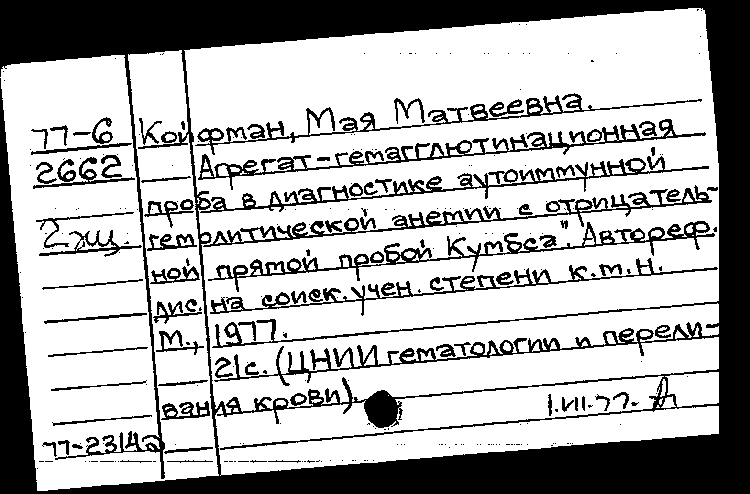 77-6 Койфман, Мая Матвеевна.
2662 Агрегат-гемагглютинационная
проба в диагностике аутоиммунной
2 экз. гемолитической анемии с отрицатель-
ной прямой пробой Кумбса". Автореф.
дис. на соиск. учен. степени к.м.н.
М., 1977.
21с. (ЦНИИ гематологии и перели-
вания крови).
1.VII.77.
77-23142